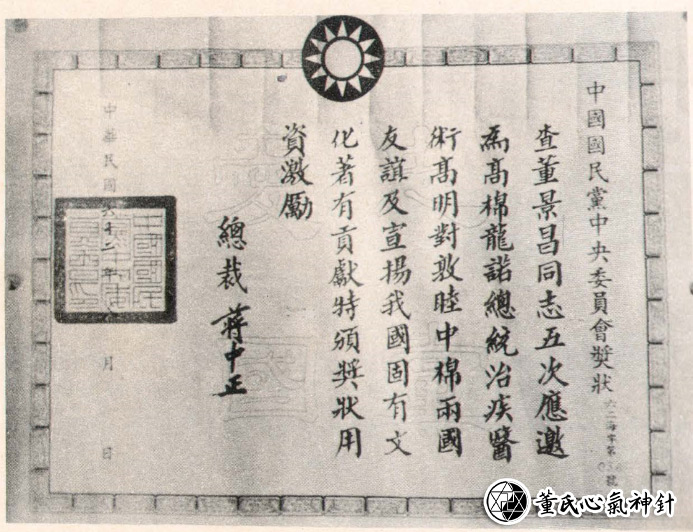 中國國民黨中央委員會獎狀
六二海字第 號
查董景昌同志五次應邀
為高棉龍諾總統治疾醫
術高明對敦睦中棉兩國
友誼及宣揚我國固有文
化著有貢獻特頒獎狀用
資激勵
總裁 蔣中正
中華民國六十二年 月 日
董氏心氣神針